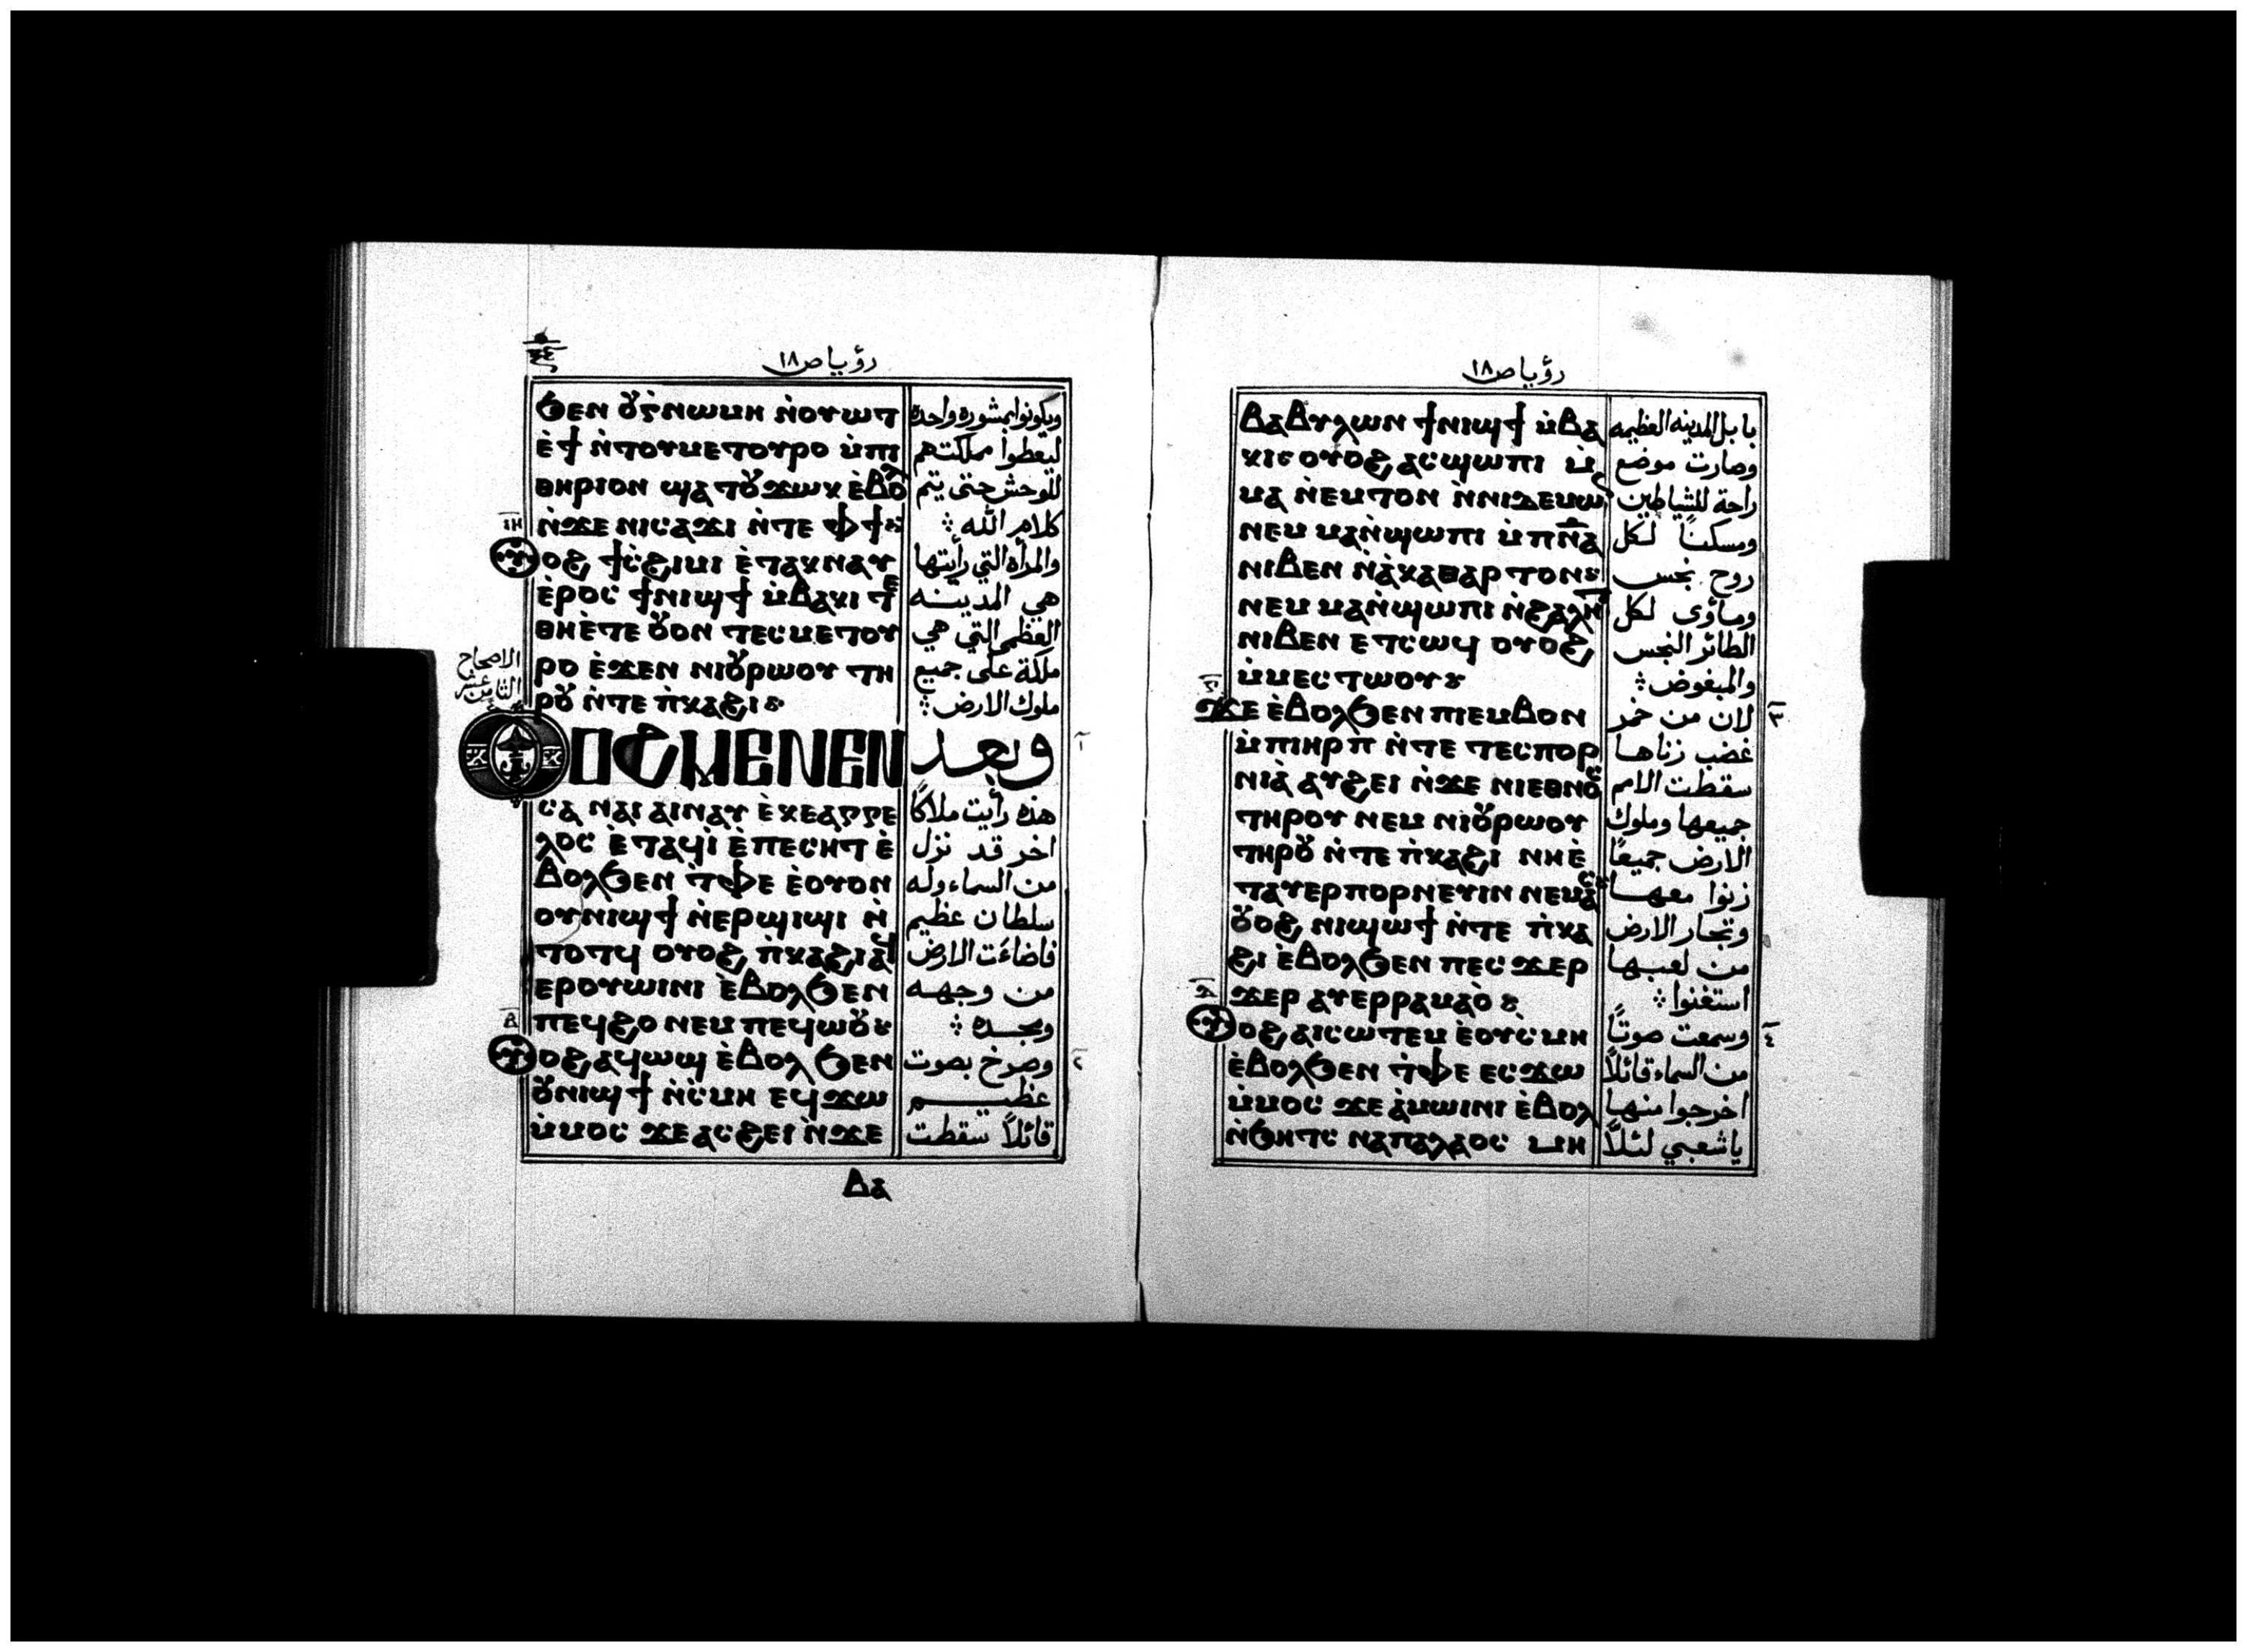 رؤيا ص١٨
ϧⲉⲛ ⲟ⩒ⲅ̀ⲛⲱⲙⲏ ⲛ̀ⲟⲩⲱⲧ
ⲉ̀ϯ ⲛ̀ⲧⲟⲩⲙⲉⲧⲟⲩⲣⲟ ⲙ̀ⲡⲓ
ⲑⲏⲣⲓⲟⲛ ϣⲁⲧⲟⲩϫⲱⲕ ⲉ̀ⲃⲟⲗ
ⲛ̀ϫⲉ ⲛⲓⲥⲁϫⲓ ⲛ̀ⲧⲉ ⲫϯ
ⲓⲏ
ⲟⲩⲟϩ ϯⲥ̀ϩⲓⲙⲓ ⲉ̀ⲧⲁⲕⲛⲁⲩ
ⲉ̀ⲣⲟⲥ ϯⲛⲓϣϯ ⲙ̀ⲃⲁⲕⲓ ⲧⲉ
ⲑⲏⲉ̀ⲧⲉ ⲟⲩⲟⲛ ⲧⲉⲥⲙⲉⲧⲟⲩ
ⲣⲟ ⲉ̀ϫⲉⲛ ⲛⲓⲟⲩⲣⲱⲟⲩ ⲧⲏ
ⲣⲟⲩ ⲛ̀ⲧⲉ ⲡ̀ⲕⲁϩⲓ
الاصحاح
الثامن عشر
ⲟⲩⲟϩ ⲙⲉⲛⲉⲛ
ⲥⲁ ⲛⲁⲓ ⲁⲓⲛⲁⲩ ⲉ̀ⲕⲉⲁⲅⲅⲉ
ⲗⲟⲥ ⲉ̀ⲧⲁϥⲓ̀ ⲉ̀ⲡⲉⲥⲏⲧ ⲉ̀
ⲃⲟⲗϧⲉⲛ ⲧ̀ⲫⲉ ⲉ̀ⲟⲩⲟⲛ
ⲟⲩⲛⲓϣϯ ⲛ̀ⲉⲣϣⲓϣⲓ ⲛ̀
ⲧⲟⲧϥ ⲟⲩⲟϩ ⲡ̀ⲕⲁϩⲓ ⲁϥ
ⲉⲣⲟⲩⲱⲓⲛⲓ ⲉ̀ⲃⲟⲗϧⲉⲛ
ⲡⲉϥϩⲟ ⲛⲉⲙ ⲡⲉϥⲱⲟⲩ
ⲃ
ⲟⲩⲟϩ ⲁϥⲱϣ ⲉ̀ⲃⲟⲗ ϧⲉⲛ
ⲟⲩⲛⲓϣϯ ⲛ̀ⲥ̀ⲙⲏ ⲉϥϫⲱ
ⲙ̀ⲙⲟⲥ ϫⲉ ⲁⲥϩⲉⲓ ⲛ̀ϫⲉ
ⲃⲁ
ويكونوا بمشورة واحده
ليعطوا مملكتهم
للوحش حتى يتم
كلام الله
والمرأة التي رأيتها
هي المدينه
العظمى التي هي
ملكة على جميع
ملوك الارض
١
وبعد
هذه رأيت ملاكًا
اخر قد نزل
من السماء وله
سلطان عظيم
فاضاءت الارض
من وجهه
ومجده
٢
وصرخ بصوت
عظيم
قائلاً سقطت
رؤيا ص١٨
ⲃⲁⲃⲩⲗⲱⲛ ϯⲛⲓϣϯ ⲙ̀ⲃⲁ
ⲕⲓⲥ ⲟⲩⲟϩ ⲁⲥϣⲱⲡⲓ ⲙ̀
ⲙⲁ ⲛ̀ⲉⲙⲧⲟⲛ ⲛ̀ⲛⲓⲇⲉⲙⲱⲛ
ⲛⲉⲙ ⲙⲁⲛ̀ϣⲱⲡⲓ ⲙ̀ⲡⲛ̅ⲁ̅
ⲛⲓⲃⲉⲛ ⲛ̀ⲁ̀ⲕⲁⲑⲁⲣⲧⲟⲛ
ⲛⲉⲙ ⲙⲁⲛ̀ϣⲱⲡⲓ ⲛ̀ϩⲁⲗⲏⲧ
ⲛⲓⲃⲉⲛ ⲉⲧⲥⲱϥ ⲟⲩⲟϩ
ⲙ̀ⲙⲉⲥⲧⲱⲟⲩ
ⲅ
ϫⲉ ⲉ̀ⲃⲟⲗϧⲉⲛ ⲡⲓⲉⲙⲃⲟⲛ
ⲙ̀ⲡⲓⲏⲣⲡ ⲛ̀ⲧⲉ ⲧⲉⲥⲡⲟⲣ
ⲛⲓⲁ̀ ⲁⲩϩⲉⲓ ⲛ̀ϫⲉ ⲛⲓⲉⲑⲛⲟⲥ
ⲧⲏⲣⲟⲩ ⲛⲉⲙ ⲛⲓⲟⲩⲣⲱⲟⲩ
ⲧⲏⲣⲟⲩ ⲛ̀ⲧⲉ ⲡ̀ⲕⲁϩⲓ ⲛⲏⲉ̀
ⲧⲁⲩⲉⲣⲡⲟⲣⲛⲉⲩⲓⲛ ⲛⲉⲙⲁⲥ
ⲟⲩⲟϩ ⲛⲓϣⲱϯ ⲛ̀ⲧⲉ ⲡ̀ⲕⲁ
ϩⲓ ⲉ̀ⲃⲟⲗϧⲉⲛ ⲡⲉⲥϫⲉⲣ
ϫⲉⲣ ⲁⲩⲉⲣⲣⲁⲙⲁⲟ̀
ⲇ
ⲟⲩⲟϩ ⲁⲓⲥⲱⲧⲉⲙ ⲉ̀ⲟⲩⲥ̀ⲙⲏ
ⲉ̀ⲃⲟⲗϧⲉⲛ ⲧ̀ⲫⲉ ⲉⲥϫⲱ
ⲙ̀ⲙⲟⲥ ϫⲉ ⲁ̀ⲙⲱⲓⲛⲓ ⲉ̀ⲃⲟⲗ
ⲛ̀ϧⲏⲧⲥ ⲛⲁⲡⲁⲗⲁⲟⲥ ⲙⲏ
بابل المدينه العظيمه
وصارت موضع
راحة للشياطين
ومسكنًا لكل
روح نجس
ومأوى لكل
الطائر النجس
والمبغوض
٣
لان من خمر
غضب زناها
سقطت الامم
جميعها وملوك
الارض جميعًا
زنوا معها
وتجار الارض
من لعبها
استغنوا
٤
وسمعت صوتًا
من السماء قائلاً
اخرجوا منها
ياشعبي لئلاً